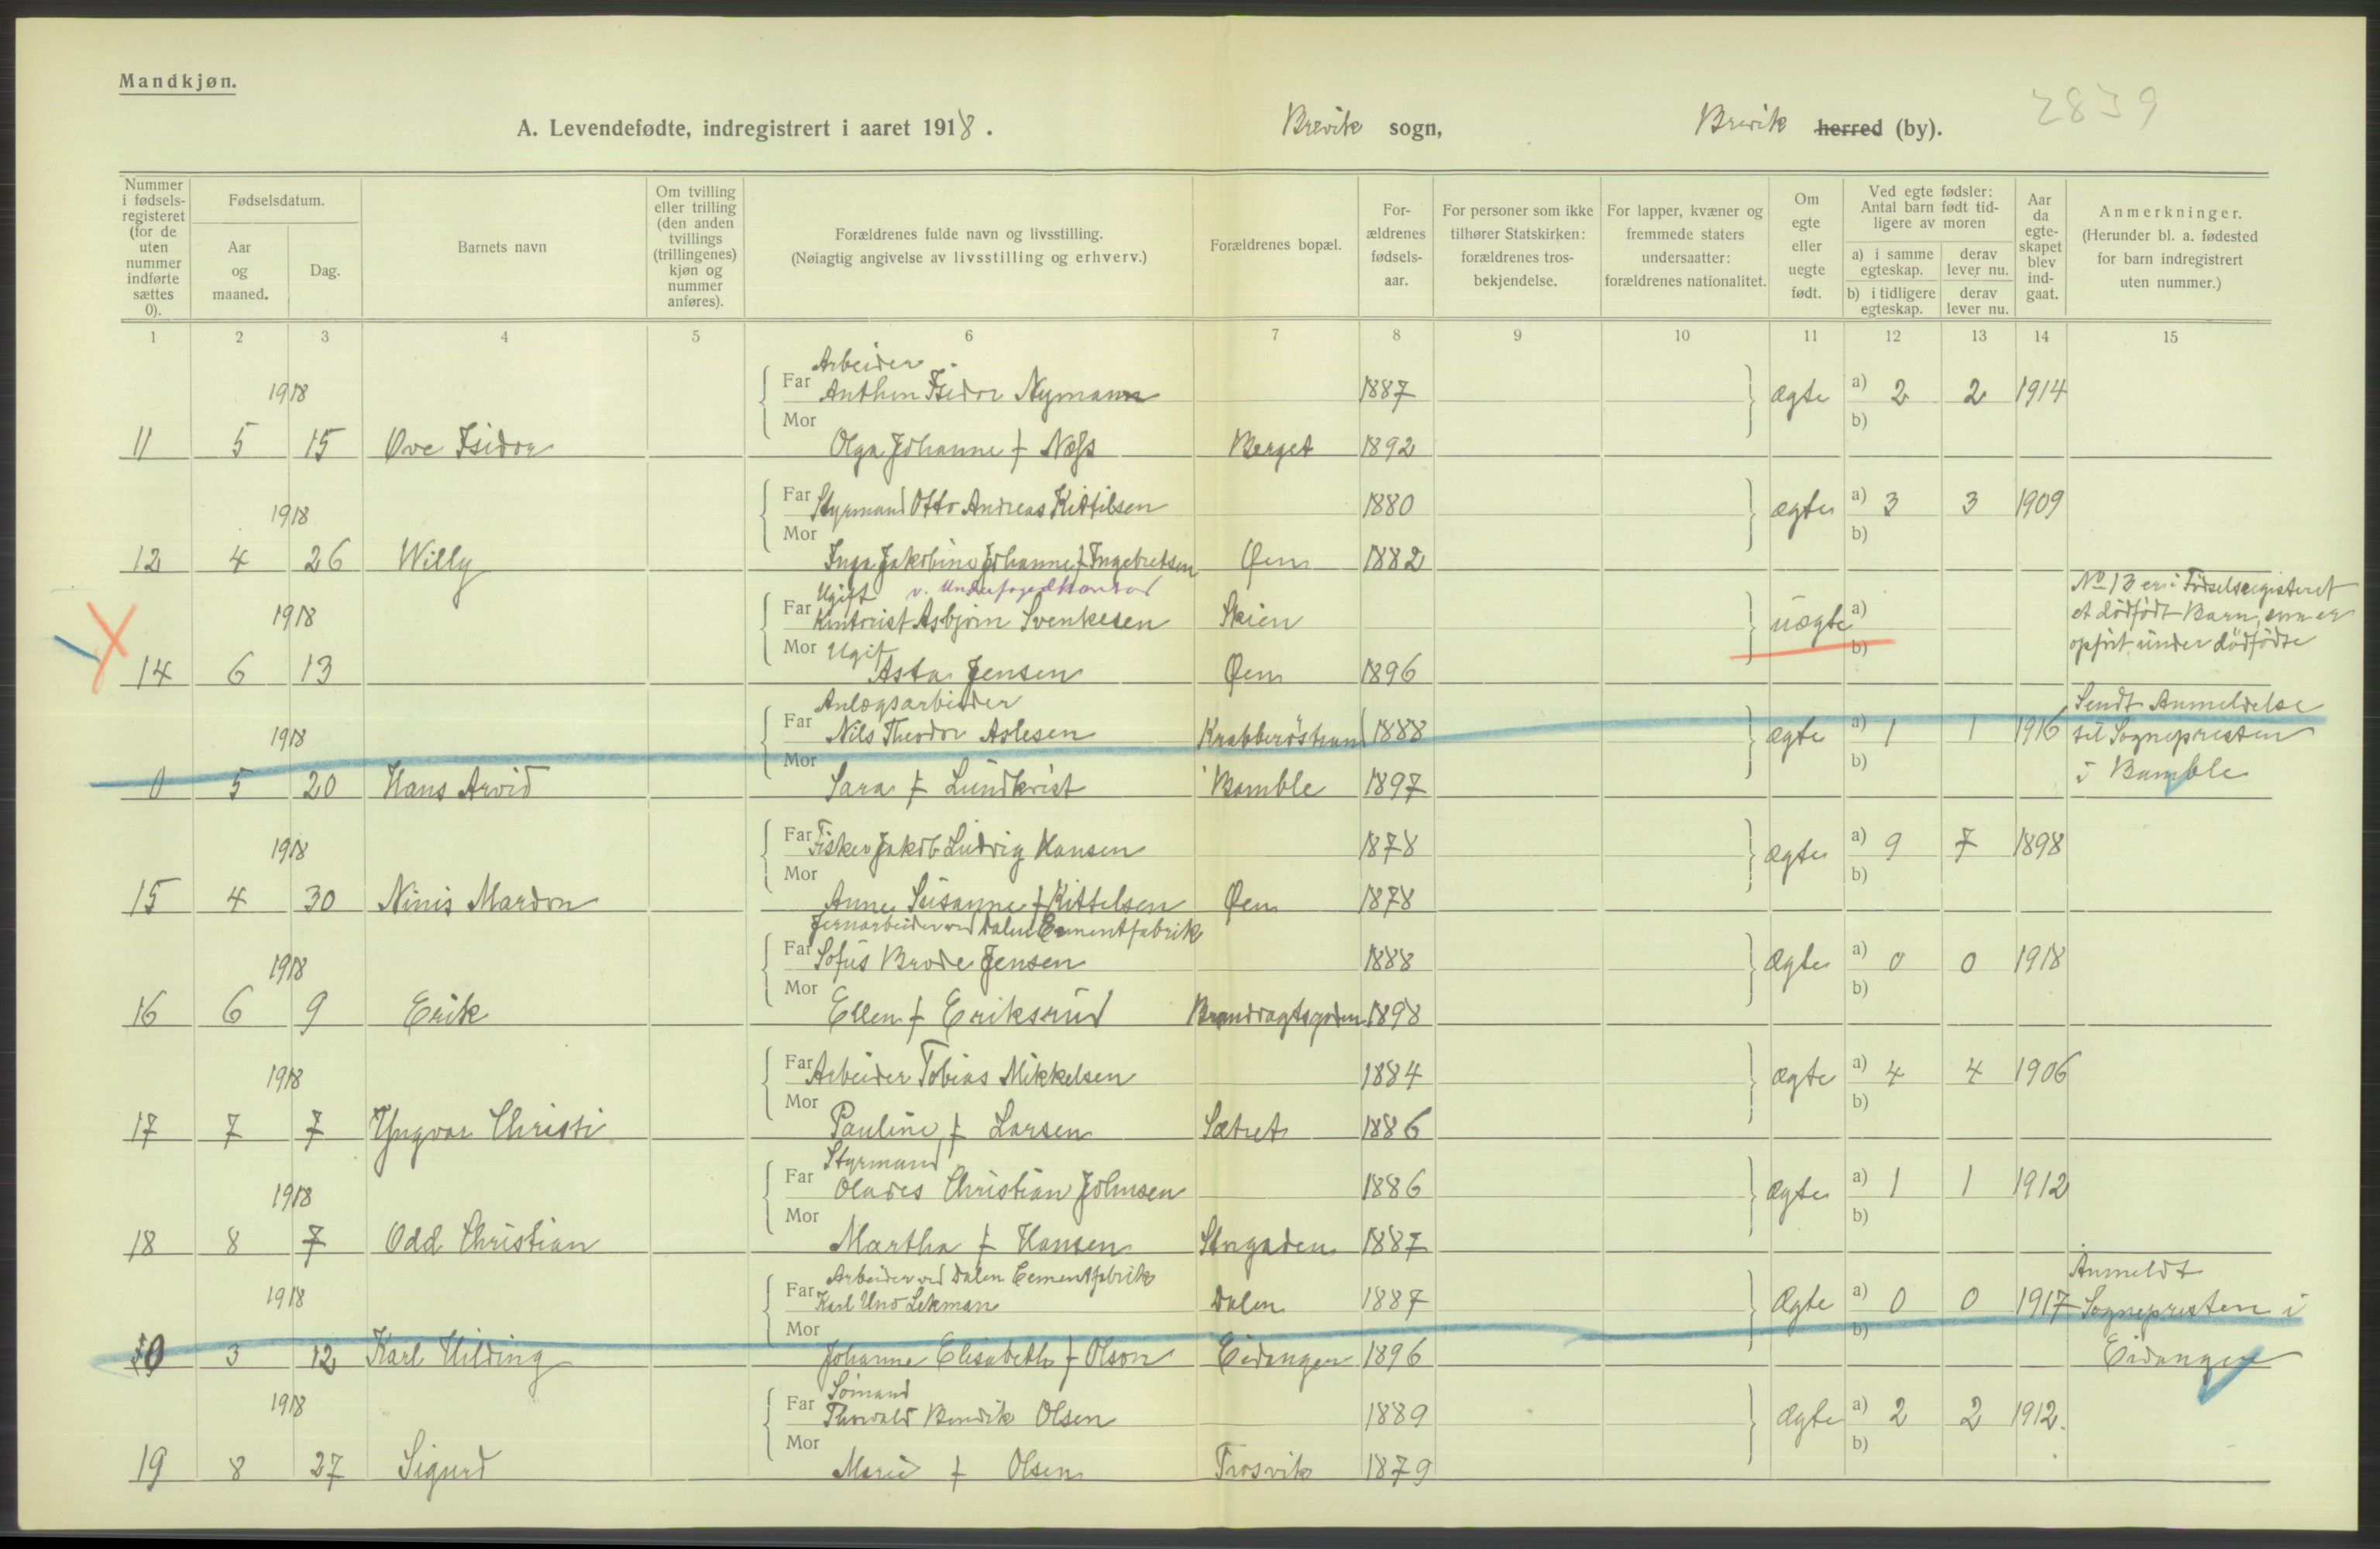 Mandkjøn.
A. Levendefødte, indregistrert i aaret 1918. Brevik sogn, Brevik herred (by). 2839
Nummer i fødsels-registeret (for de uten nummer indførte sættes 0).
Fødselsdatum.
Aar og maaned.
Dag.
Barnets navn
Om tvilling eller trilling (den anden tvillings (trillingenes) kjøn og nummer anføres).
Forældrenes fulde navn og livsstilling.
(Nøiagtig angivelse av livsstilling og erhverv.)
Forældrenes bopæl.
For-ældrenes fødsels-aar.
For personer som ikke tilhører Statskirken: forældrenes tros-bekjendelse.
For lapper, kvæner og fremmede staters undersaatter: forældrenes nationalitet.
Om egte eller uegte født.
Ved egte fødsler: Antal barn født tid-ligere av moren
a) i samme egteskap. derav lever nu.
b) i tidligere egteskap. derav lever nu.
Aar da egte-skapet blev ind-gaat.
Anmerkninger.
(Herunder bl. a. fødested for barn indregistrert uten nummer.)
1 2 3 4 5 6 7 8 9 10 11 12 13 14 15
Arbeider
1918 Far Anthon Isidor Nymann 1887 ægte a) 2 2 1914
Mor b)
11 5 15 Ove Isidor Olga Johanne f Næss Berget 1892
1918 Far Styrmand Otto Andreas Kittilsen 1880 ægte a) 3 3 1909
Mor b)
12 4 26 Willy Inga Jakobine Johanne f Ingebretsen Øen 1882
Ugift v.
1918 Far Kontorist Asbjørn Svenkesen Skien uægte a)
Mor Ugift b)
14 6 13 Asta Jensen Øen 1896
No 13 er i Fødselsregisteret
et dødfødt Barn, som er
opført under dødfødte
Anlægsarbeider
1918 Far Nils Theodor Aslesen 1888 ægte a) 1 1 1916
Mor b)
0 5 20 Hans Arvid Sara f Lundkvist Bamble 1897
Sendt Anmeldelse
til Sognepresten
i Bamble
1918 Far Fisker Jakob Ludvig Hansen 1878 ægte a) 9 7 1898
Mor b)
15 4 30 Ninis Mardon Anne Susanne f Kittelsen Øen 1878
Jernarbeider ved Dalen Cementfabrik
1918 Far Sofus Brode Jensen 1888 ægte a) 0 0 1918
Mor b)
16 6 9 Erik Ellen f Eriksrud 1898
1918 Far Arbeider Tobias Mikkelsen 1884 ægte a) 4 4 1906
Mor b)
17 7 7 Yngvar Christi Pauline f Larsen Sætret 1886
Styrmand
1918 Far Olaves Christian Johnsen 1886 ægte a) 1 1 1912
Mor b)
18 8 7 Odd Christian Martha f Hansen Storgaden 1887
Arbeider ved Dalen Cementfabrik
1918 Far Karl Uno Lekman Dalen 1887 ægte a) 0 0 1917
Mor b)
0 3 12 Karl Hilding Johanne Elisabeth f Olson Eidanger 1896
Anmeldt
Sognepresten i
Eidanger
Sømand
1918 Far Thorvald Bendik Olsen 1889 ægte a) 2 2 1912.
Mor b)
19 8 27 Sigurd Marie f Olsen Trosvik 1879